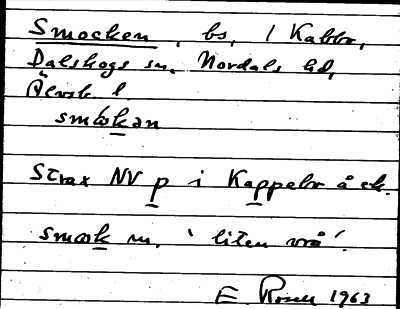 Smocken, bs, / Kabbo,
Dalskogs sn. Nordals hd,
Älvsb. l.
smɷkən
Strax NV p i Kappebo å ek.
smɷk m. 'liten vrå'.
E Rosell 1963